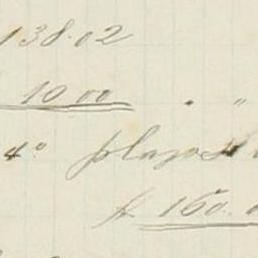 138.02
10 00 . "
4° plazo
160.